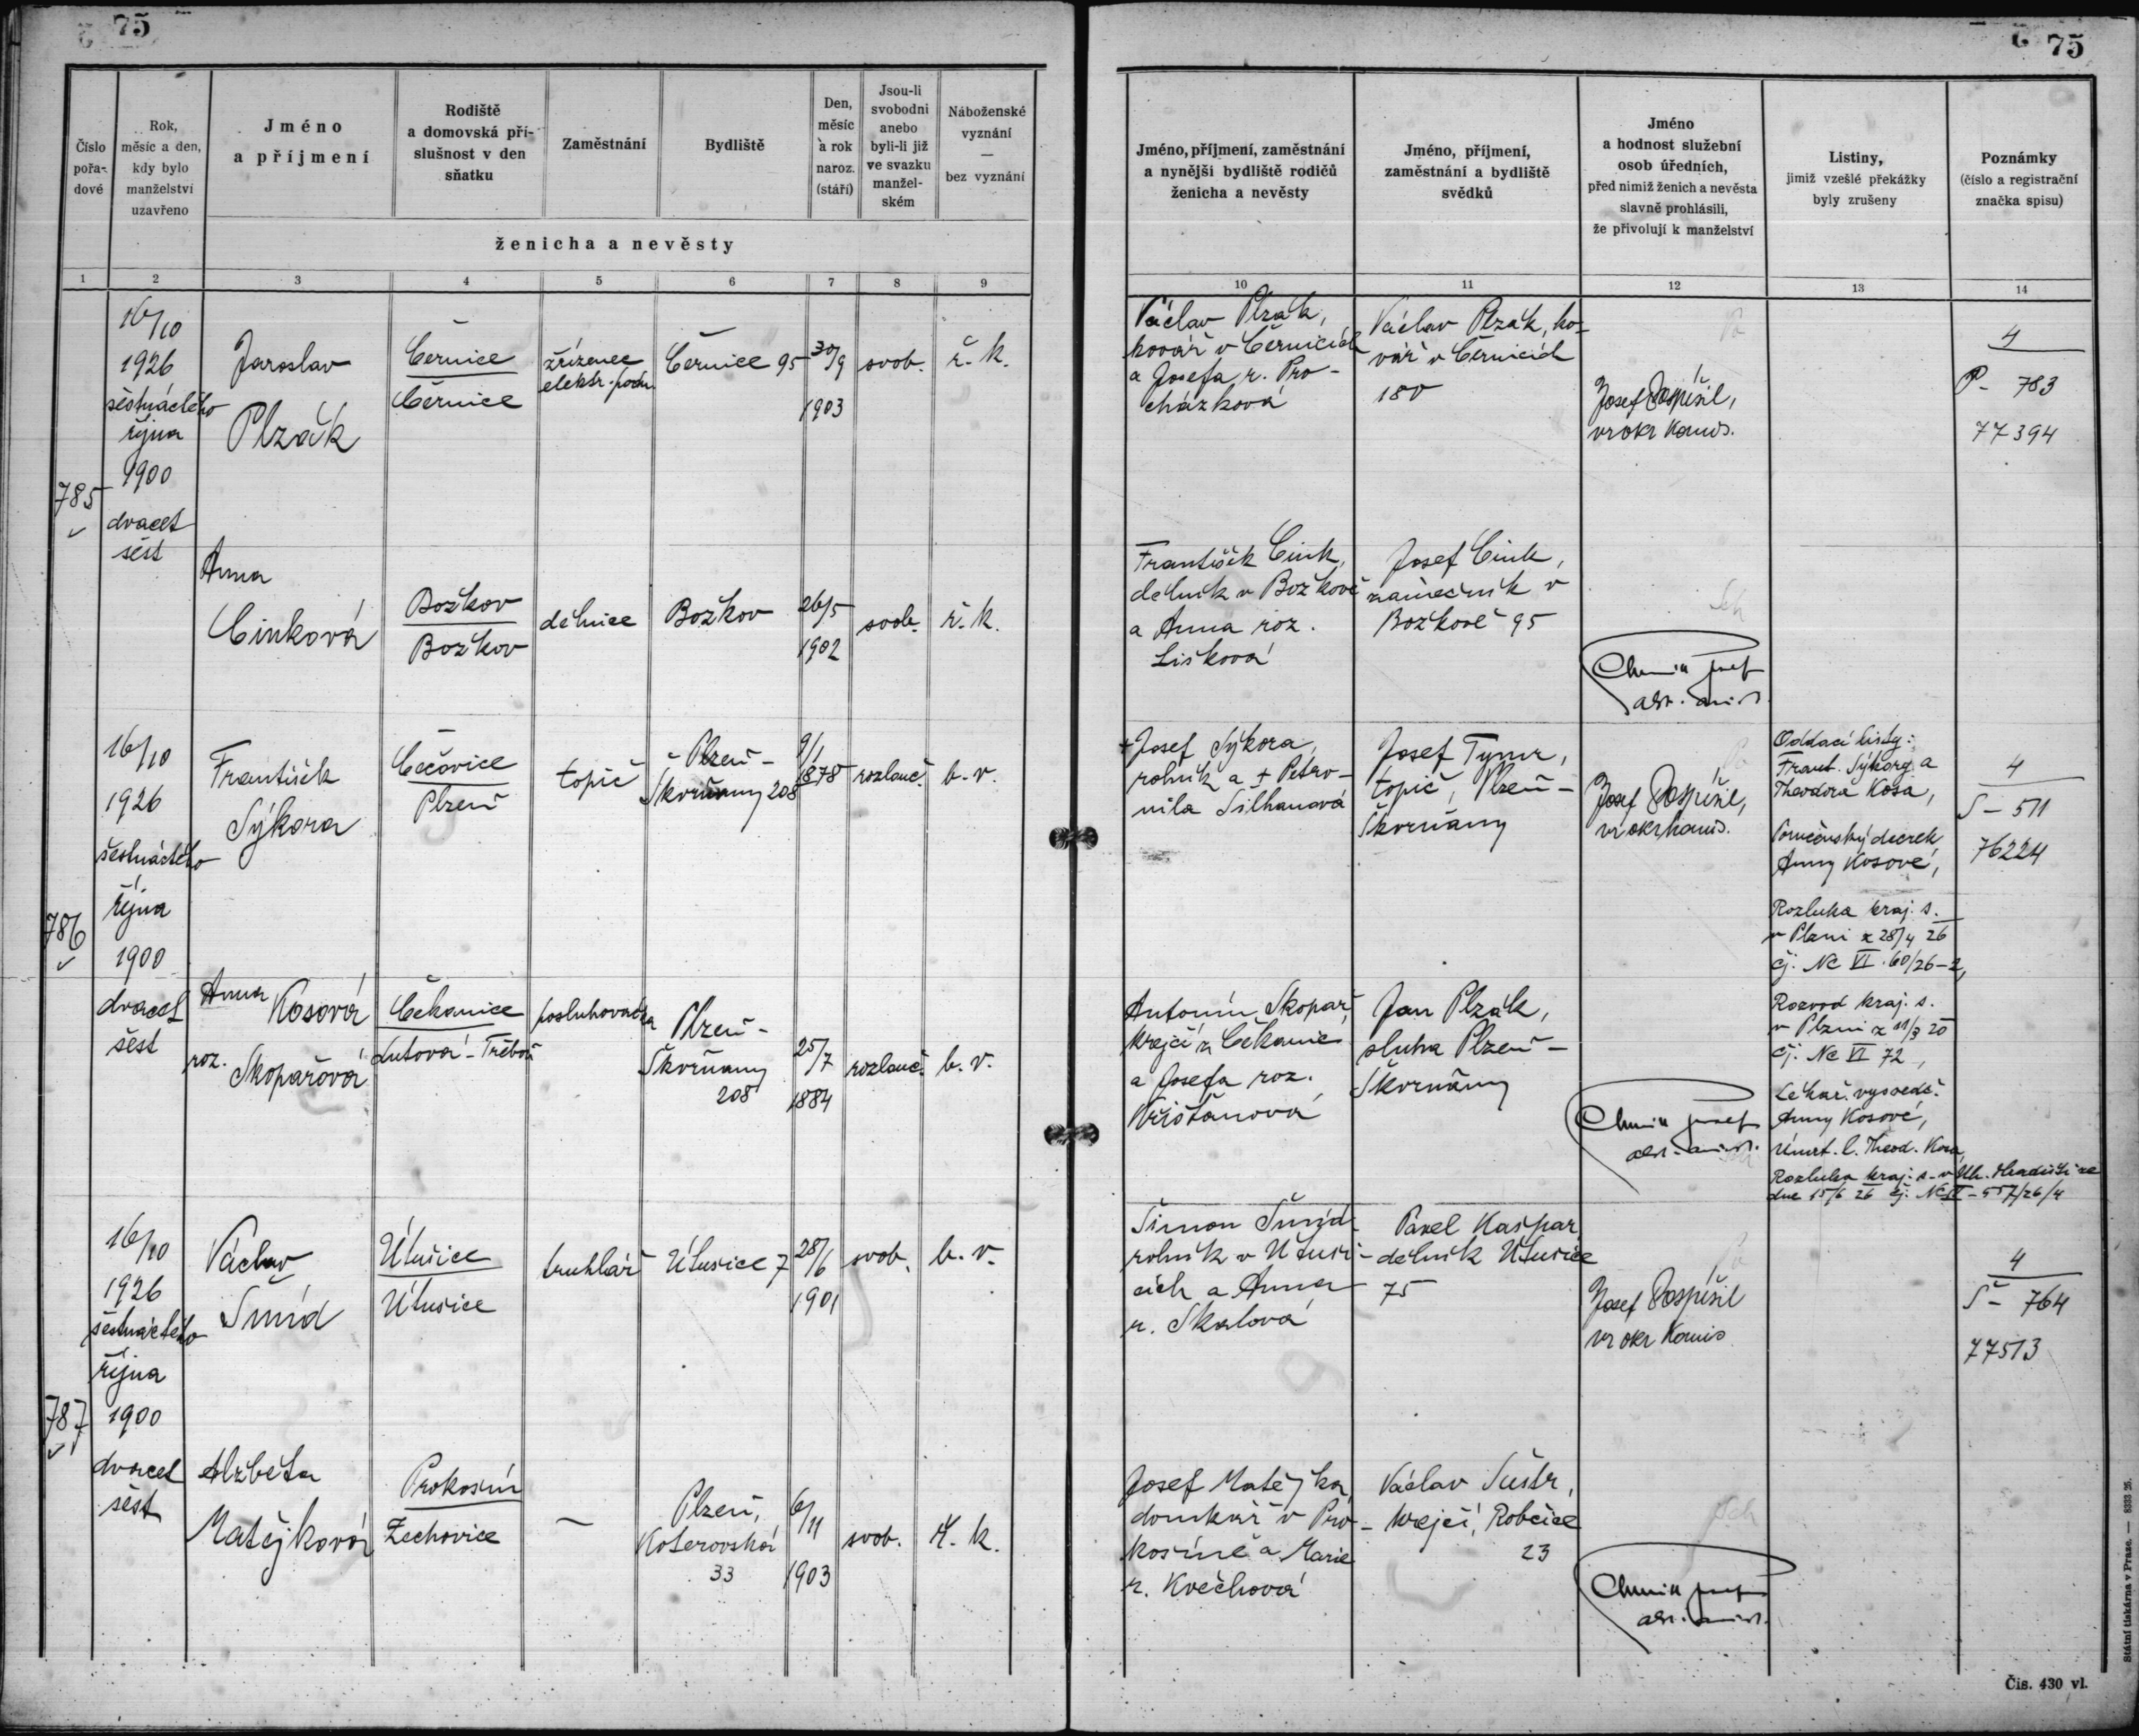 75
Číslo pořadové
Rok, měsíc a den, kdy bylo manželství uzavřeno
Jméno a příjmení
Rodiště a domovská příslušnost v den sňatku
Zaměstnání
Bydliště
Den, měsíc a rok naroz. (stáří)
Jsou-li svobodni anebo byli-li již ve svazku manželském
Náboženské vyznání — bez vyznání
ženicha a nevěsty
1 2 3 4 5 6 7 8 9
785
16/10
1926
šestnáctého
října
1900
dvacet
šest
Jaroslav
Plzák
Černice
Černice
zřízenec
elektr. podn.
Černice 95
30/9
1903
svob.
ř. k.
Anna
Cinková
Božkov
Božkov
dělnice
Božkov
26/5
1902
svob.
ř. k.
786
16/10
1926
šestnáctého
října
1900
dvacet
šest
František
Sýkora
Čečovice
Plzeň
topič
Plzeň -
Škvrňany 208
9/1
1878
rozlouč.
b. v.
Anna Kosová
roz. Skopařová
Čekanice
Lutová - Třeboň
posluhovačka
Plzeň -
Škvrňany
208
25/7
1884
rozlouč.
b. v.
787
16/10
1926
šestnáctého
října
1900
dvacet
šest
Václav
Šmíd
Útušice
Útušice
truhlář
Útušice 7
28/6
1901
svob.
b. v.
Alžběta
Matějková
Prokosín
Zechovice
—
Plzeň,
Koterovská
33
6/11
1903
svob.
ř. k.
75
Jméno, příjmení, zaměstnání a nynější bydliště rodičů ženicha a nevěsty
Jméno, příjmení, zaměstnání a bydliště svědků
Jméno a hodnost služební osob úředních, před nimiž ženich a nevěsta slavně prohlásili, že přivolují k manželství
Listiny, jimiž vzešlé překážky byly zrušeny
Poznámky (číslo a registrační značka spisu)
10 11 12 13 14
Václav Plzák,
kovář v Černicích
a Josefa, r. Pro-
cházková
Václav Plzák, ko-
vář v Černicích
180
Josef Pospíšil,
vr okr komis.
4
P - 783
77394
František Cink,
dělník v Božkově
a Anna roz.
Lišková
Josef Cink,
zámečník v
Božkově 95
+ Josef Sýkora,
rolník a + Petro-
nila Šilhanová
Josef Tymr,
topič, Plzeň -
Škvrňany
Josef Pospíšil,
vr okr komis.
Oddací listy:
Frant. Sýkory a
Theodora Kosa,
Poručenský decrek
Anny Kosové,
Rozluka kraj. s.
v Plzni z 28/4 26
čj. Nc VI. 60/26-2,
Rozvod kraj. s.
v Plzni z 11/3 20
čj. Nc VI 72,
Lékař. vysvědč.
Anny Kosové,
Úmrt. l. Theod. Kosa,
Rozluka kraj. s. v Uh. Hradišti ze
dne 15/6 26 čj. Nc II - 557/26/4
4
S - 511
76224
Antonín Skopař,
krejčí z Čekanic
a Josefa roz.
Krišťanová
Jan Plzák,
sluha Plzeň -
Škvrňany
Šimon Šmíd
rolník v Útuši-
cích a Anna
r. Skalová
Pavel Kašpar
dělník Útušice
75
Josef Pospíšil
vr okr komis
4
Š - 764
77513
Josef Matějka,
domkář v Pro-
kosíně a Marie
r. Kvěchová
Václav Šustr,
krejčí, Robčice
23
Čis. 430 vl.
Státní tiskárna v Praze. — 8333 26.